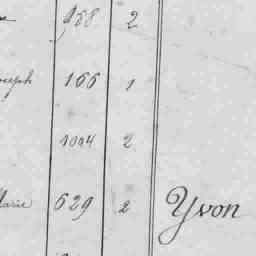 958 2
oseph 166 1
1004 2
Marie 629 2 Yvon